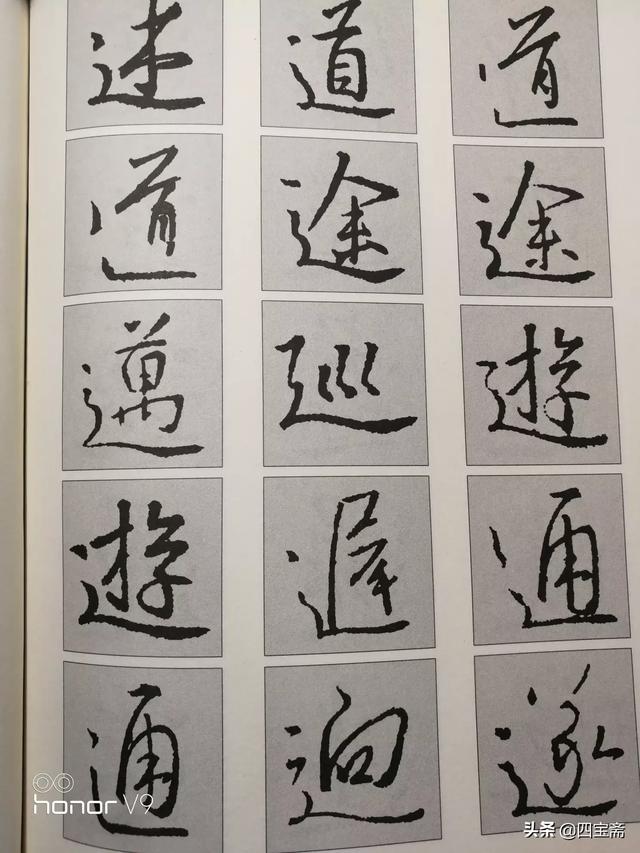 道 道
道 途 途
邁 巡 遊
遊 遲 通
通 逈 遂
honor V9
头条 @四宝斋